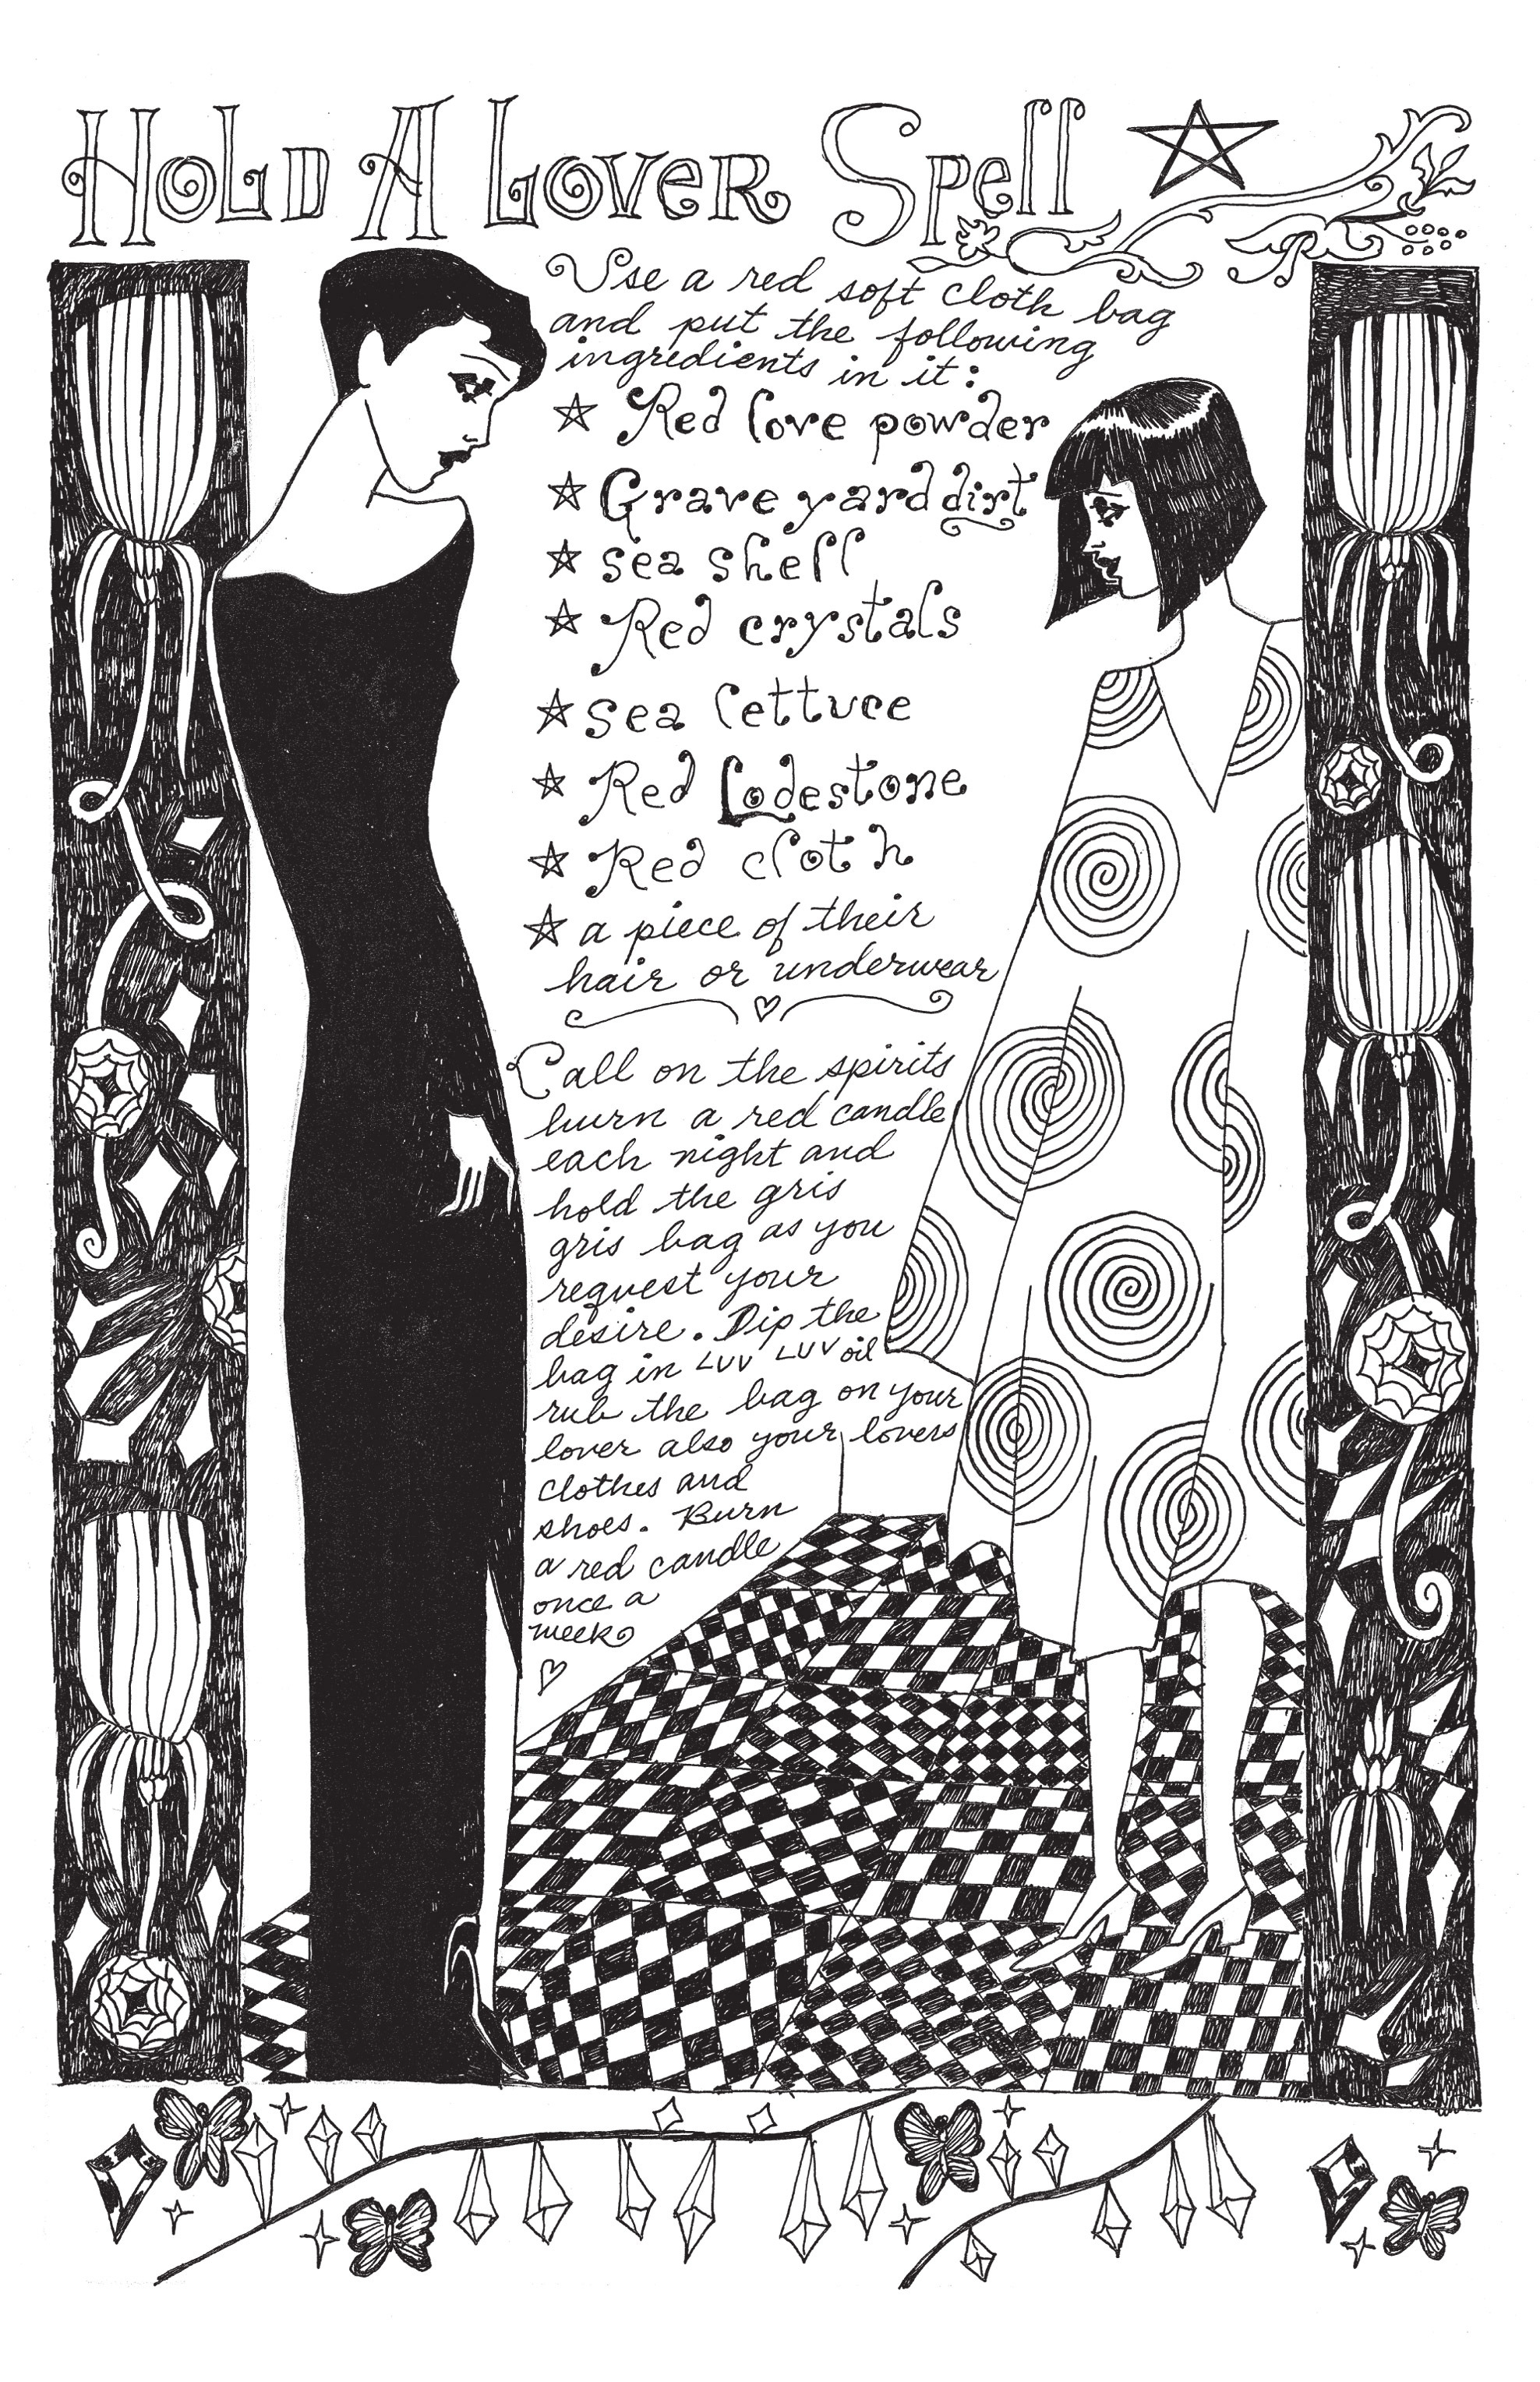 HOLD A LOVER Spell
Use a red soft cloth bag
and put the following
ingredients in it:
Red love powder
Grave yard dirt
sea shell
Red crystals
sea lettuce
Red Lodestone
Red cloth
a piece of their
hair or underwear
Call on the spirits
burn a red candle
each night and
hold the gris
gris bag as you
request your
desire. Dip the
bag in LUV LUV oil
rub the bag on your
lover also your lovers
clothes and
shoes. Burn
a red candle
once a
week